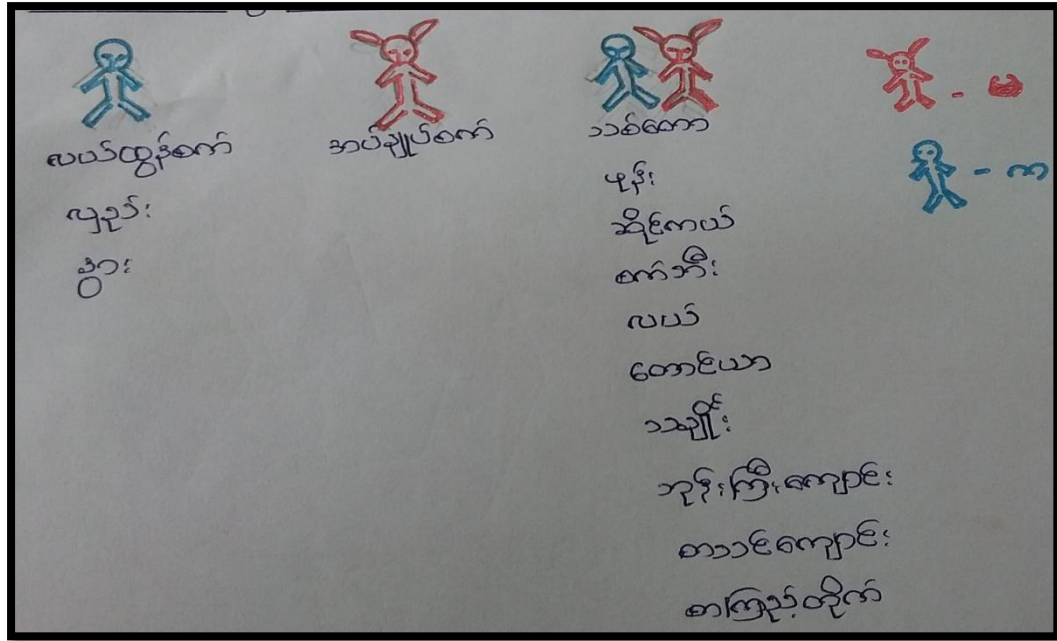 လယ်ထွန်စက်
လှည်း
နွား
အပ်ချုပ်စက်
သစ်တော
ဖုန်း
ဆိုင်ကယ်
စက်ဘီး
လယ်
တောင်ယာ
သချိုင်း
ဘုန်းကြီးကျောင်း
စာသင်ကျောင်း
စာကြည့်တိုက်
- မ
- က